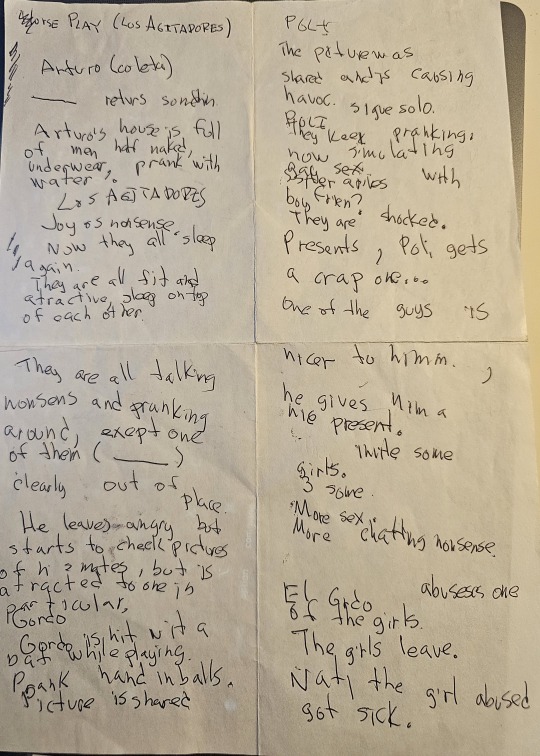 Horse Play (Los Agitadores)
Arturo (coleta)
___ returs somthin
Arturo's house is full
of men half naked,
underwear, prank with
water.
Los Agitadores
Joy os nonsense.
Now they all sleep
again.
They are all fit and
atractive, sleep on top
of each other.
They are all talking
nonsens and pranking
around, exept one
of them (___)
clearly out of
place.
He leaves angry but
starts to check pictures
of his mates, but is
atracted to one in
particular,
Gordo
Gordo is hit wit a
bat while playing.
Prank hand in balls.
Picture is shared
Poli
The picture was
shared and is causing
havoc. sigue solo.
Poli
They keep pranking,
now simulating
gay sex.
Sister arrives with
boyfrien?
They are shocked.
Presents, Poli gets
a crap one...
One of the guys is
nicer to himm.
he gives him a
nic present.
Invite some
girls.
3 some.
More sex.
More chatting nonsense.
El Grdo abuseses one
of the girls.
The girls leave.
Nati the girl abused
got sick.